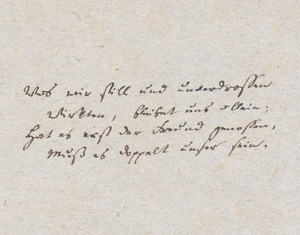 Was wir still und unverdrossen
Wirkten, bleibet uns allein;
Hat es erst der Freund genossen,
Muß es doppelt unser sein.